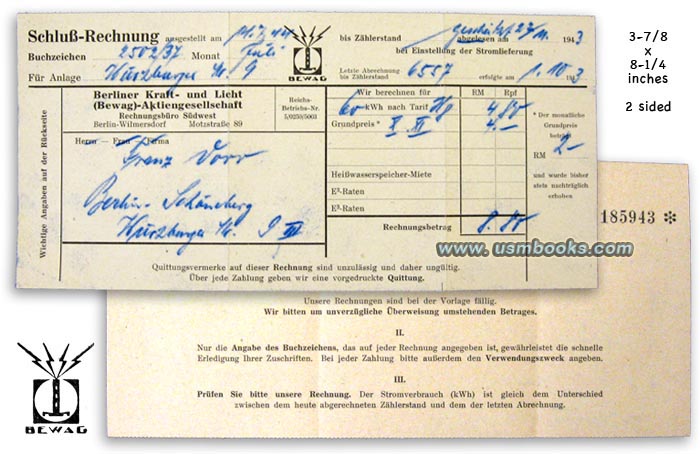 Schluß-Rechnung ausgestellt am
Buchzeichen 2502/37 Monat Juli
Für Anlage Würzburger Str. 9
BEWAG
bis Zählerstand geschätzt 1943
abgelesen am
bei Einstellung der Stromlieferung
Letzte Abrechnung bis Zählerstand 6557 erfolgte am 1.10.3
Wichtige Angaben auf der Rückseite
Berliner Kraft- und Licht
(Bewag)-Aktiengesellschaft
Rechnungsbüro Südwest
Berlin-Wilmersdorf Motzstraße 89
Reichs-
Betriebs-Nr.
5/0250/5003
Herrn — Frau — Firma
Franz Dorr
Berlin-Schöneberg
Würzburger Str. 9 III
Wir berechnen für RM Rpf
60 kWh nach Tarif 4,80
Grundpreis * X. XI 4.-
Heißwasserspeicher-Miete
E²-Raten
E³-Raten
Rechnungsbetrag 8.80
* Der monatliche
Grundpreis
beträgt
RM 2-
und wurde bisher
stets nachträglich
erhoben
Quittungsvermerke auf dieser Rechnung sind unzulässig und daher ungültig.
Über jede Zahlung geben wir eine vorgedruckte Quittung.
3-7/8
x
8-1/4
inches
2 sided
185943 *
www.usmbooks.com
Unsere Rechnungen sind bei der Vorlage fällig.
Wir bitten um unverzügliche Überweisung umstehenden Betrages.
II.
Nur die Angabe des Buchzeichens, das auf jeder Rechnung angegeben ist, gewährleistet die schnelle
Erledigung Ihrer Zuschriften. Bei jeder Zahlung bitte außerdem den Verwendungszweck angeben.
III.
Prüfen Sie bitte unsere Rechnung. Der Stromverbrauch (kWh) ist gleich dem Unterschied
zwischen dem heute abgerechneten Zählerstand und dem der letzten Abrechnung.
BEWAG